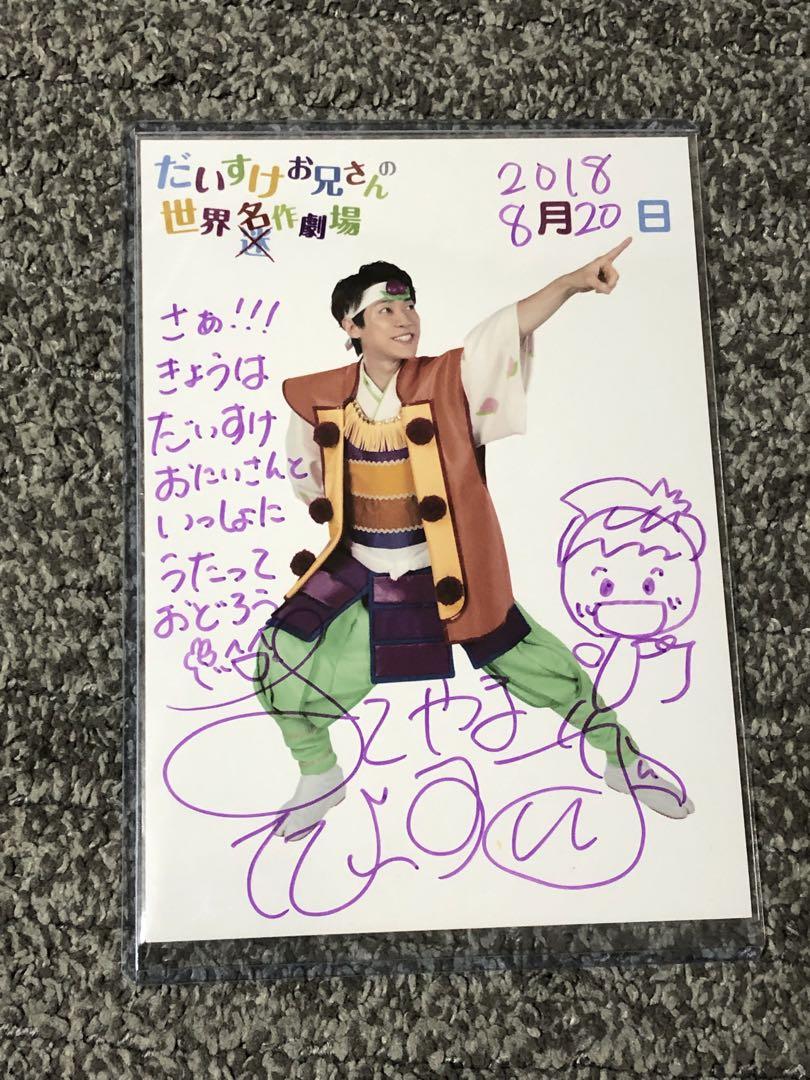 だいすけお兄さんの
世界名作劇場
迷
2018
8月20日
さぁ!!!
きょうは
だいすけ
おにいさんと
いっしょに
うたって
おどろう